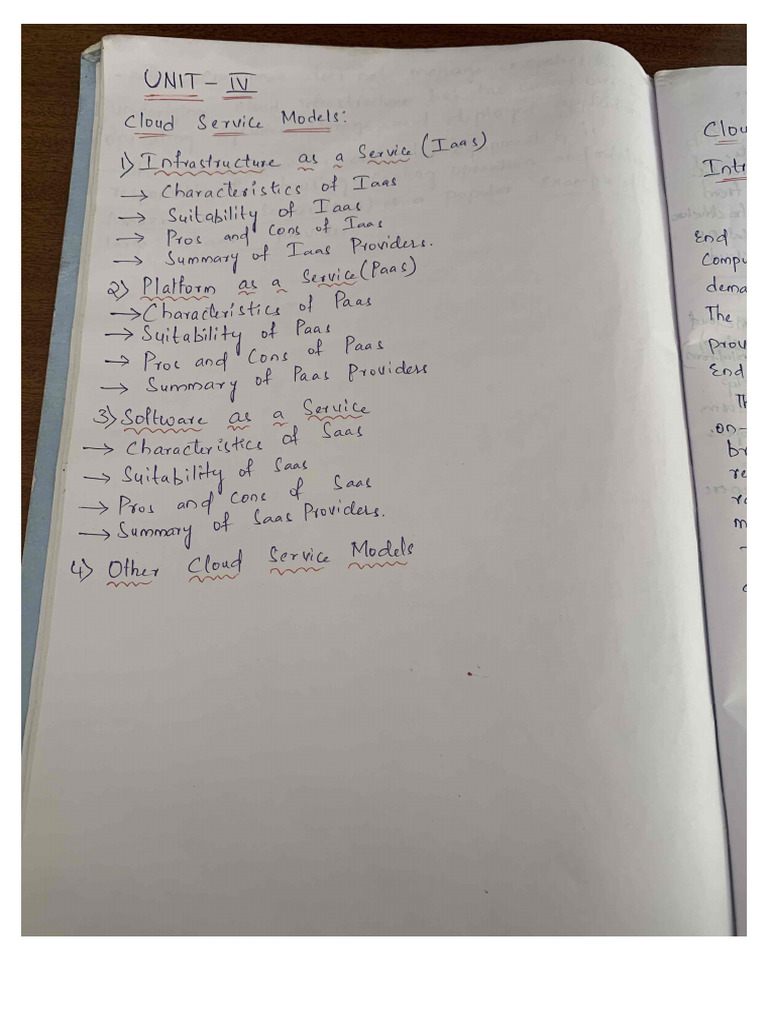 UNIT - IV
Cloud Service Models:
1) Infrastructure as a Service (Iaas)
→ Characteristics of Iaas
→ Suitability of Iaas
→ Pros and Cons of Iaas
→ Summary of Iaas Providers.
2) Platform as a Service (Paas)
→ Characteristics of Paas
→ Suitability of Paas
→ Pros and Cons of Paas
→ Summary of Paas Providers
3) Software as a Service
→ Characteristics of Saas
→ Suitability of Saas
→ Pros and Cons of Saas
→ Summary of Saas Providers.
4) Other Cloud Service Models
Clou
Intr
End
Compu
dema
The
prov
End
Th
on-
br
re